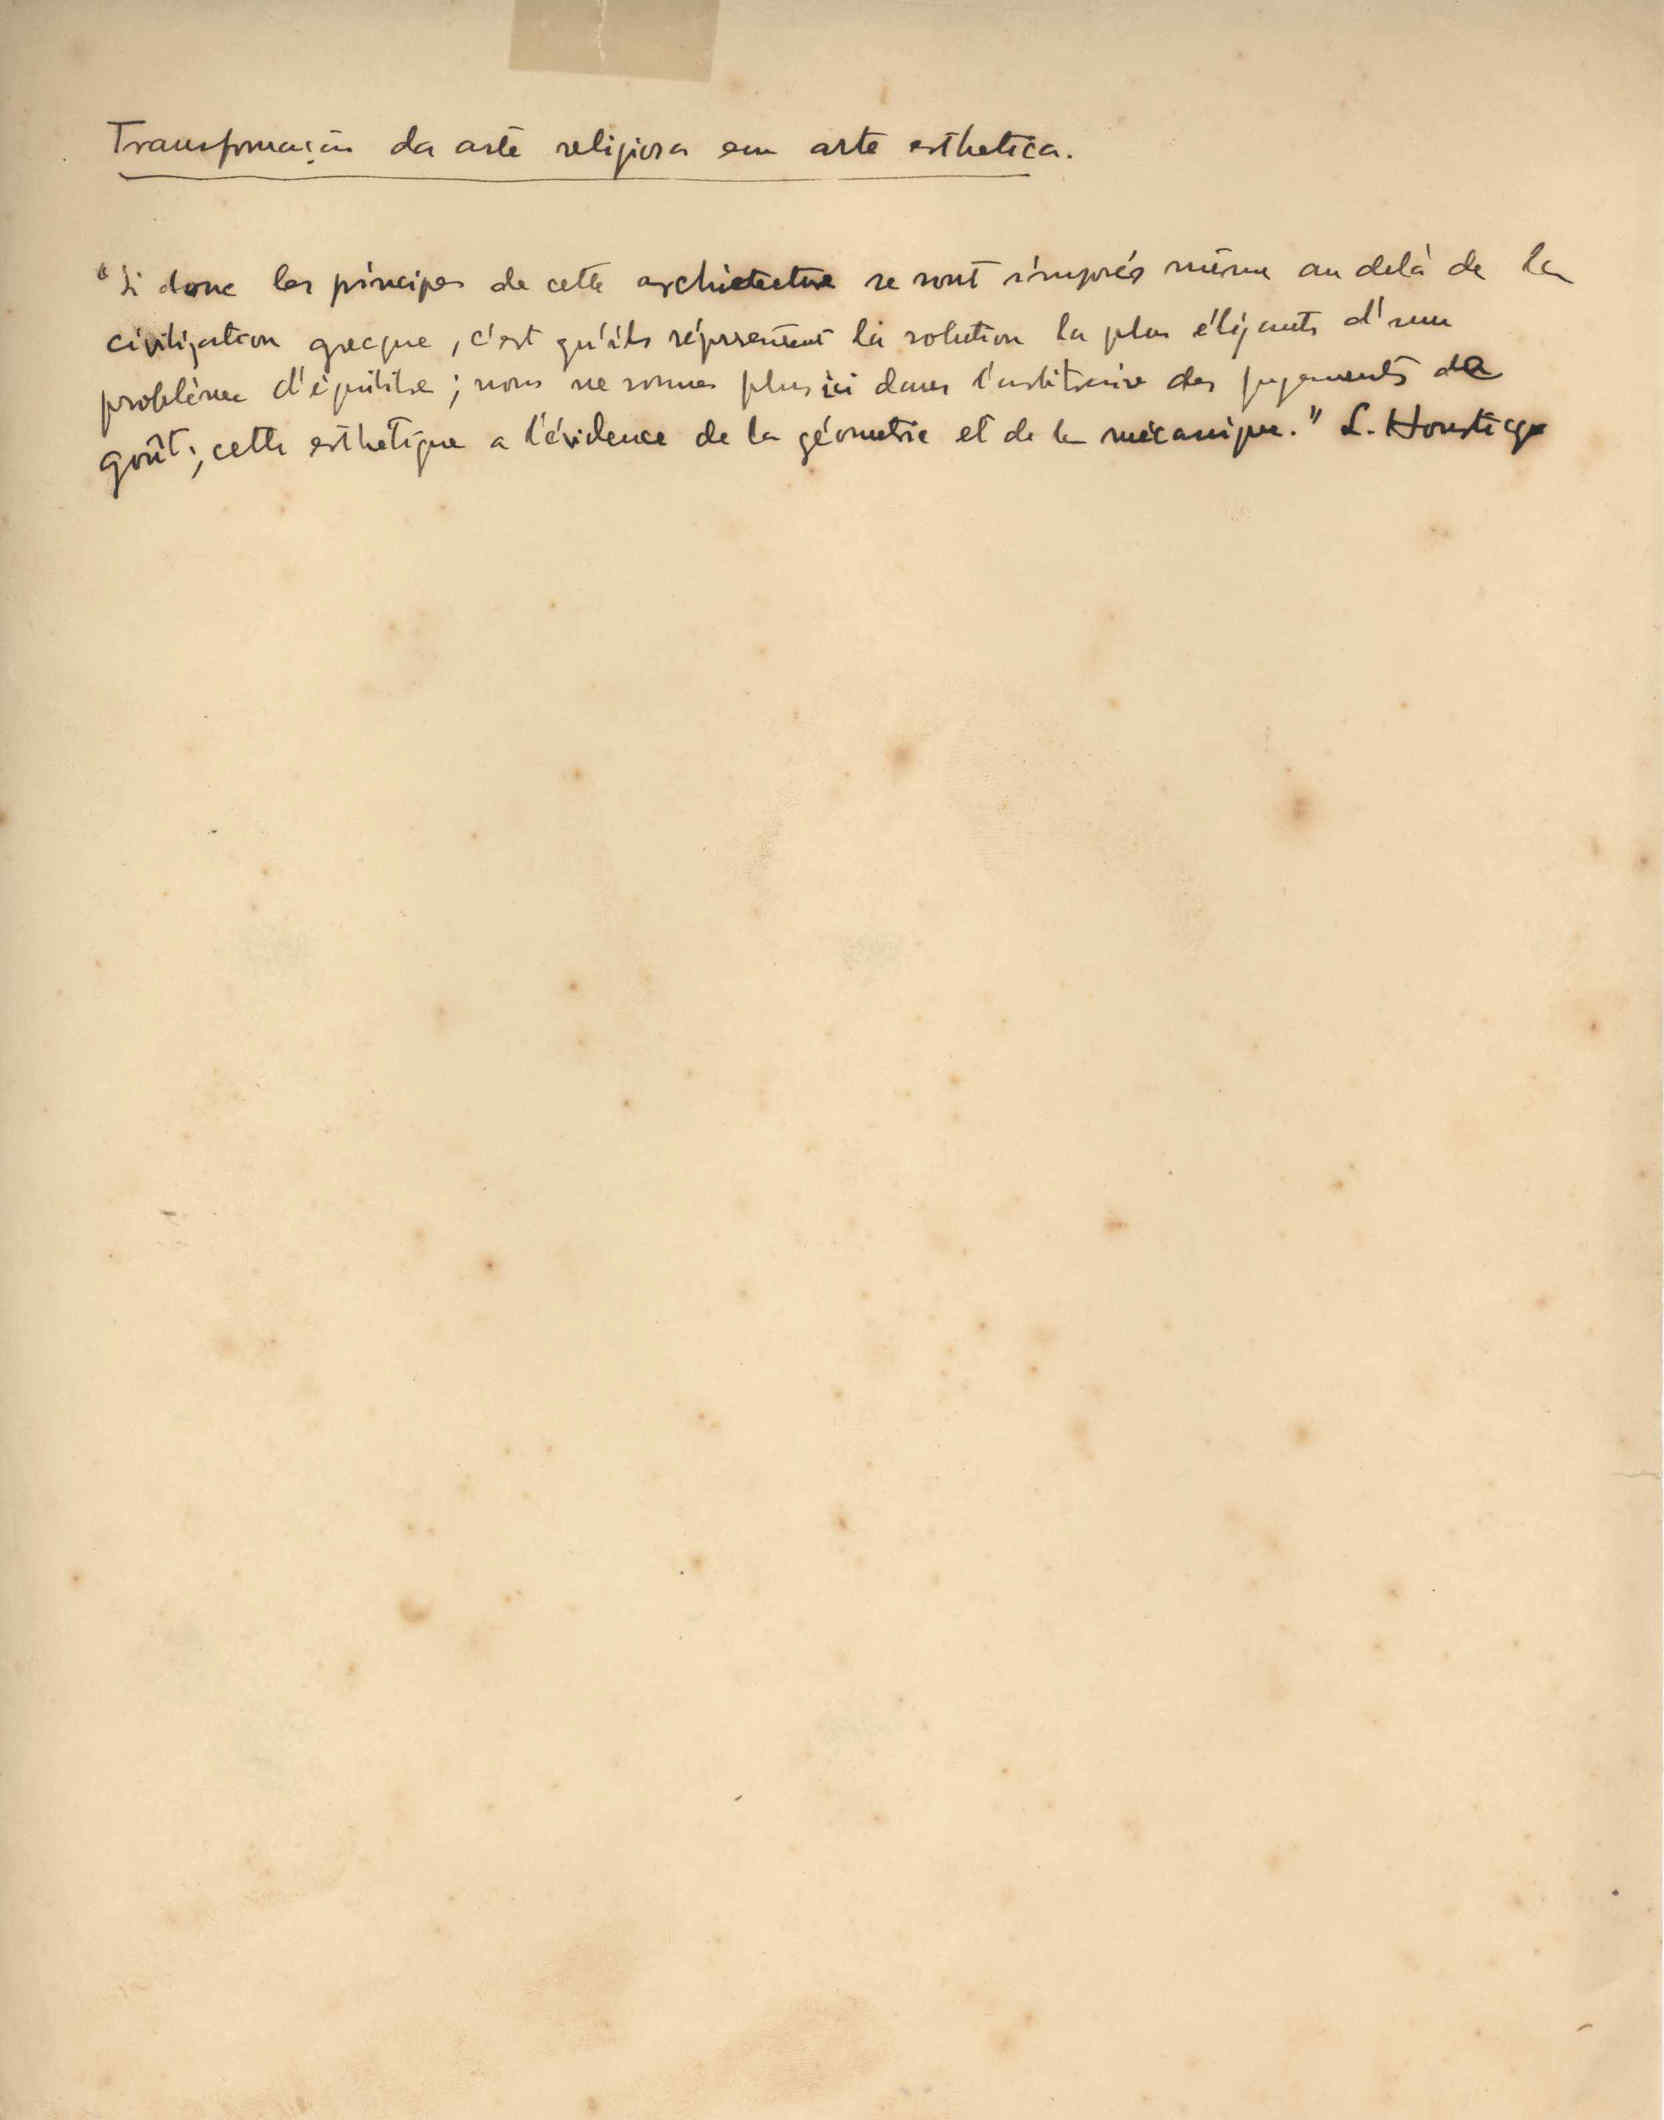 Transformação da arte religiosa em arte esthetica.
"Si donc les principes de cette architecture se sont imposés même au delà de la
civilization grecque, c'est qu'ils répresentent la solution la plus élégante d'un
problème d'équilibre; nous ne sommes plus ici dans l'arbitraire des jugements de
goût; cette esthetique a l'évidence de la géometrie et de la mécanique." L. Hourticq